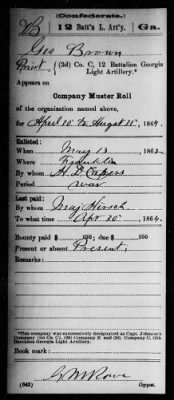 (Confederate.)
B 12 Batt'n L. Art'y. Ga.
Geo Brown
Privt, (3d) Co. C, 12 Battalion Georgia Light Artillery.*
Appears on
Company Muster Roll
of the organization named above,
for April 30 to August 31, 1864.
Enlisted:
When May 13, 1862.
Where Franklin
By whom H. D. Capers
Period war
Last paid:
By whom Maj Hirsch
To what time Apr 30, 1864.
Bounty paid $ 100; due $ 100
Present or absent Present
Remarks:
*This company was successively designated as Capt. Johnson's Company (1st Co. C), (3d) Company E and (3d) Company C, 12th Battalion Georgia Light Artillery.
Book mark:
G M Rowe
(642) Copyist.